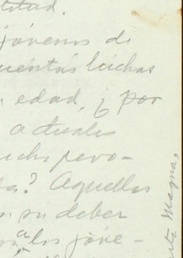 titud.
jóvenes di
cuentas luchas
edad, ¿por
actuales
pero-
? Aquellos
su deber
a los jóve-
Magna,